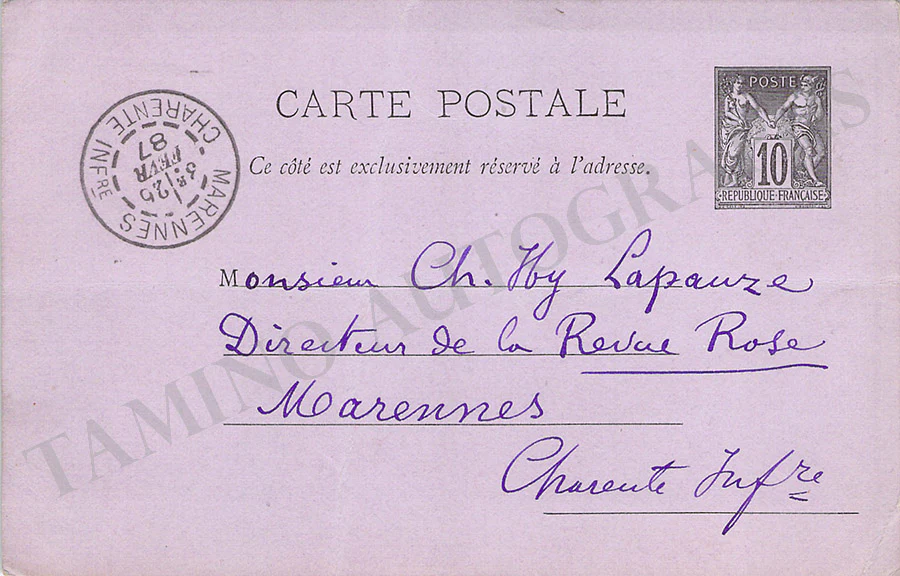 CARTE POSTALE
Ce côté est exclusivement réservé à l'adresse.
POSTE
10
RÉPUBLIQUE FRANÇAISE
MARENNES
CHARENTE INFRE
3E
25
FEVR
87
Monsieur Ch. Hy Lapauze
Directeur de la Revue Rose
Marennes
Charente Infre
TAMINO AUTOGRAPHS